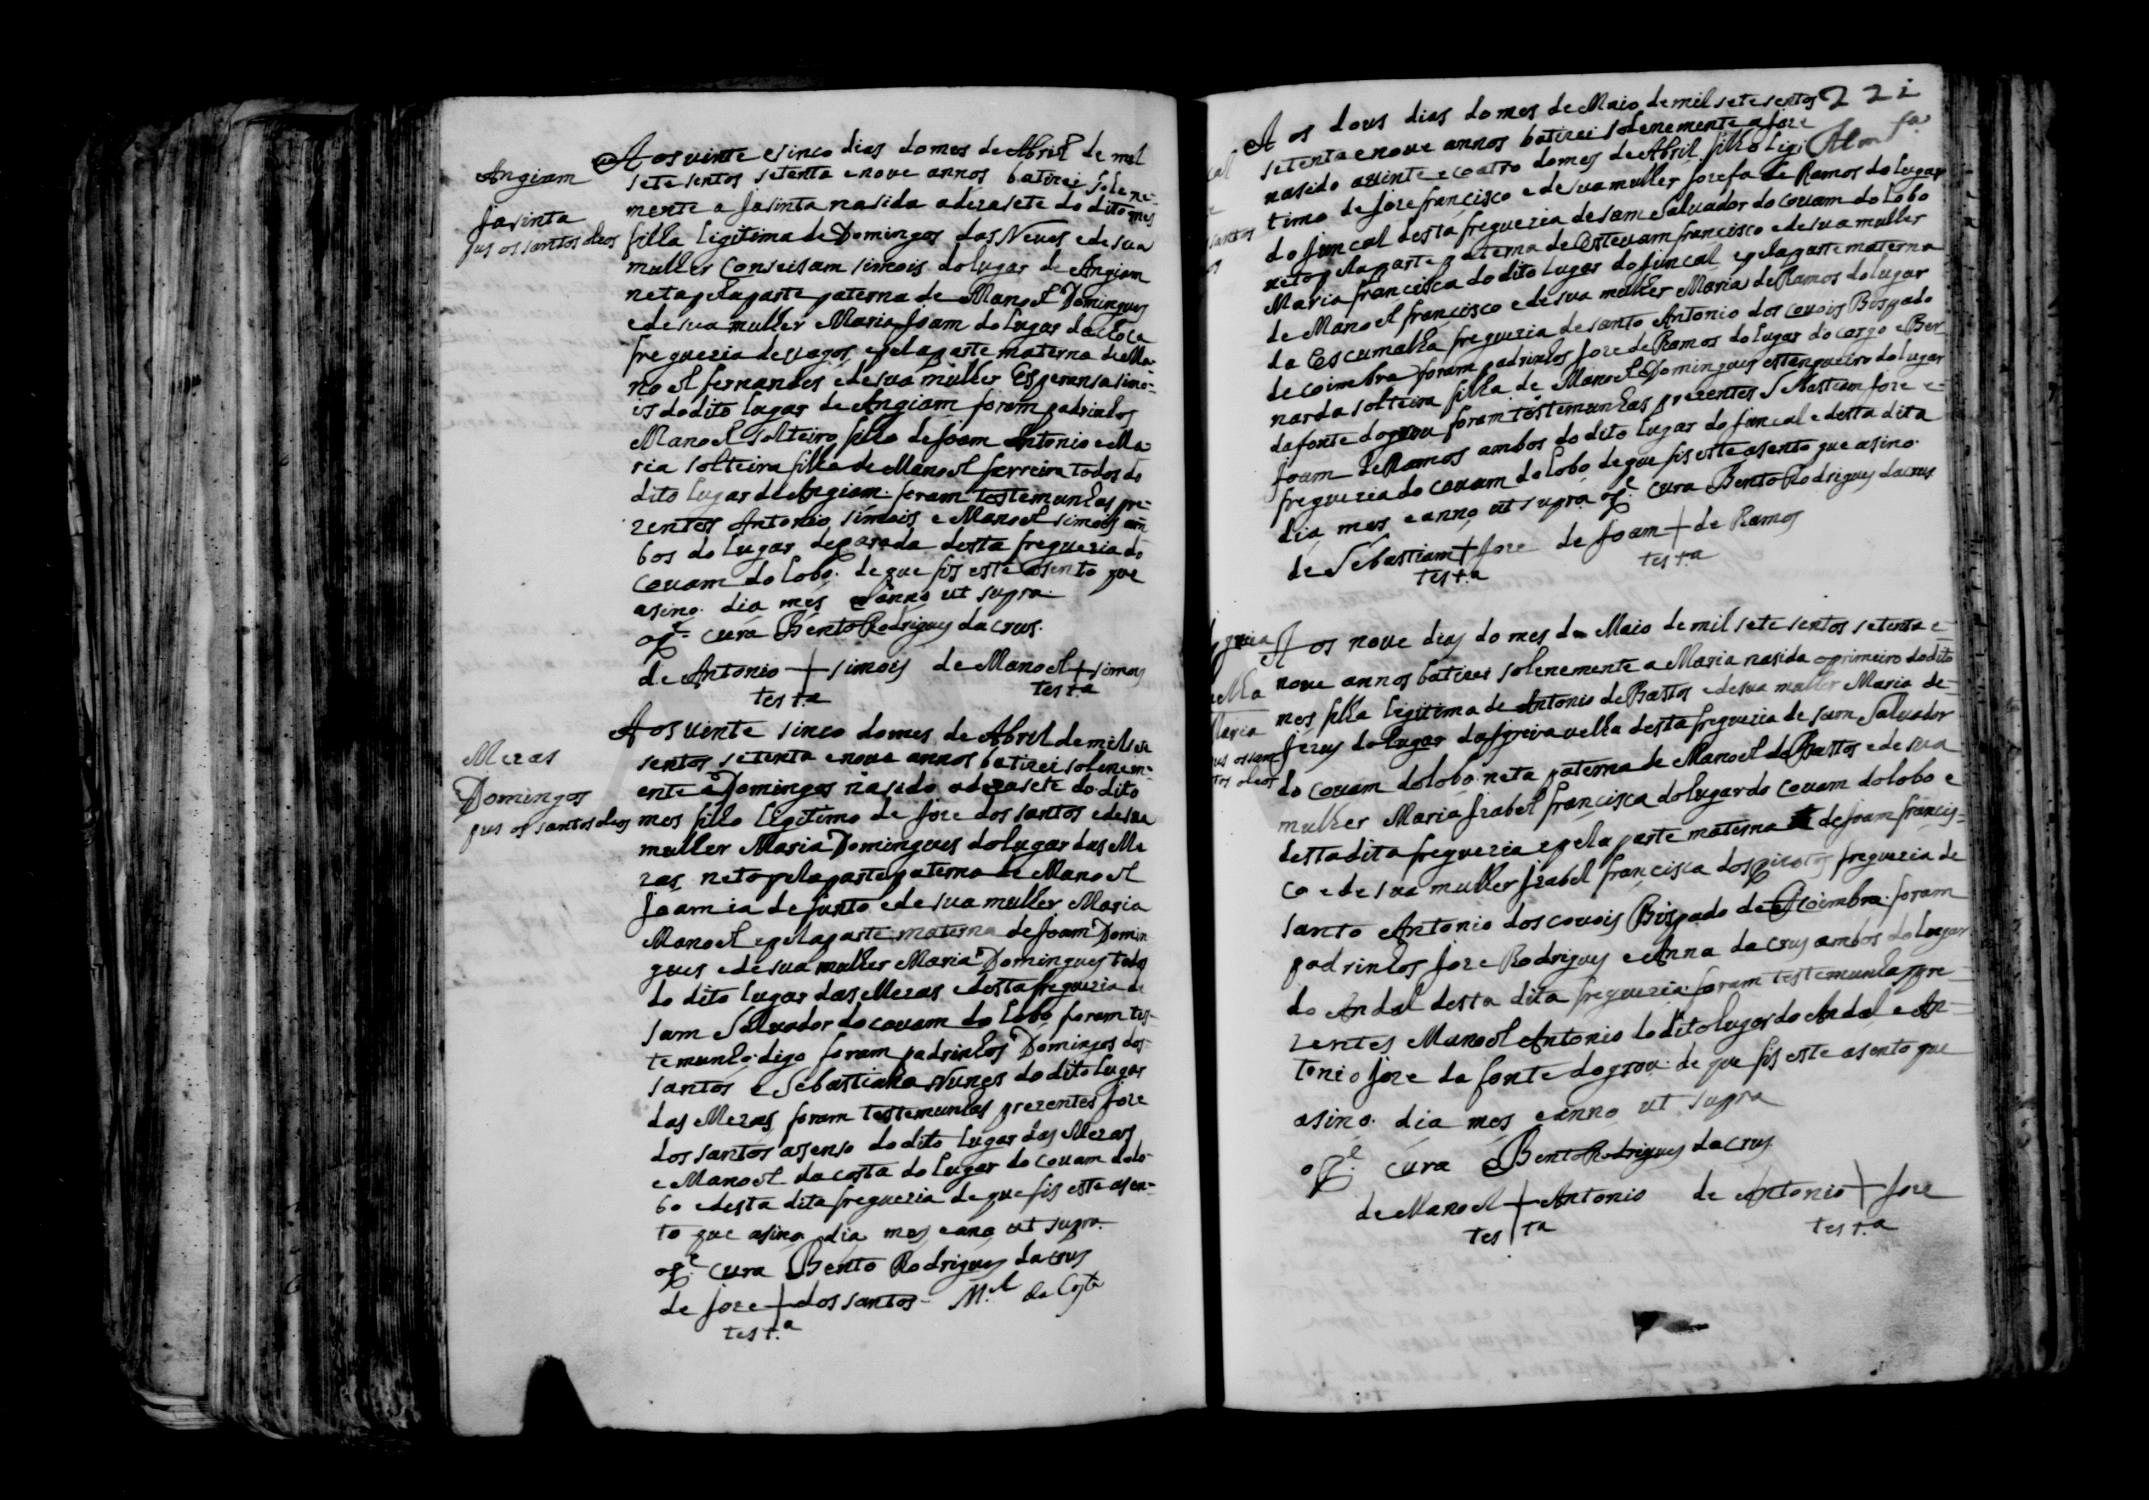 Angiam
Jasinta
pus os santos oleos
Aos vinte esinco dias do mes de Abril de mil
setesentos setenta enove annos batizei solene-
mente a Jasinta nasida adezasete do dito mes
filla ligitima de Domingos das Neves edesua
muller Conseisam simois do lugar de Angiam
neta pela parte paterna de Manoel Domingues
edesua muller Maria Joam do lugar da
freguezia devagos, epela parte materna de Ma-
noel fernandes edesua muller Esperansa simo-
is do dito lugar de Angiam foram padrinhos
Manoel solteiro fillo de Joam Antonio e Ma-
ria solteira filla de Manoel ferreira todos do
dito lugar de Angiam. foram testemunhas pre-
zentes Antonio simois e Manoel simois am
bos do lugar deparada desta freguezia do
Covam do Lobo. de que fis este asento que
asino. dia mes e anno ut supra
o Pe. cura Bento Rodrigues da crus.
de Antonio + simois de Manoel + simois
test.a test.a
Mezas
Domingos
pus os santos oleos
Aos vinte sinco do mes de Abril de mil sete
sentos setenta enove annos batizei solenem-
ente a Domingos nasido adezasete do dito
mes fillo ligitimo de Joze dos santos edesua
muller Maria Domingues do lugar das Me
zas neto pela parte paterna de Manoel
Joam ia defunto edesua muller Maria
Manoel epela parte materna de Joam Domin
gues edesua muller Maria Domingues todos
do dito lugar das Mezas edesta freguezia de
sam Salvador do covam do Lobo foram tes-
temunho. digo foram padrinhos Domingos dos
santos e Sebastiana Nunes do dito lugar
das Mezas foram testemunhas prezentes Joze
dos santos assenso do dito lugar das Mezas
e Manoel da costa do lugar do covam do lo-
bo edesta dita freguezia de que fis este asen-
to que asino dia mes eano ut supra.
o Pe. cura Bento Rodrigues da crus
de Joze + dos santos - M.el da Costa
test.a
221
Aos dous dias do mes de Maio de mil sete sentos
setenta enove annos batizei solenemente a Joze
nasido avinte ecoatro do mes de Abril fillo ligi
timo de Joze francisco edesua muller Josefa de Ramos do lugar
do Juncal desta freguezia de sam Salvador do covam do Lobo
neto pela parte paterna de Estevam francisco edesua muller
Maria francisca do dito lugar do Juncal epela parte materna
de Manoel francisco edesua muller Maria de Ramos do lugar
da Escumalha freguezia de santo Antonio dos covois Bispado
de coimbra foram padrinhos Joze de Ramos do lugar do corgo e Ber
narda solteira filla de Manoel Domingues estanqueiro do lugar
dafonte dogrou foram testemunhas prezentes Sebastiam Joze e-
Joam de Ramos ambos do dito lugar do Juncal edesta dita
freguezia do covam do lobo de que fis este asento que asino.
dia mes e anno ut supra o Pe. cura Bento Rodrigues da crus
de Sebastiam + Joze de Joam + de Ramos
test.a test.a
Maria
Aos nove dias do mes de Maio de mil sete sentos setenta e
nove annos batizei solenemente a Maria nasida oprimeiro do dito
mes filla ligitima de Antonio de Bastos edesua muller Maria de-
Jezus do lugar dagreiravella desta freguezia de sam Salvador
do covam dolobo. neta paterna de Manoel de Bastos edesua
muller Maria Izabel francisca do lugar do covam dolobo e
desta dita freguezia epela parte materna de Joam francis-
co edesua muller Izabel francisca dos freguezia de
santo Antonio dos covois Bispado de Coimbra. foram
padrinhos Joze Rodrigues e Anna da crus ambos do lugar
do Andal desta dita freguezia. foram testemunhas pre-
zentes Manoel Antonio do dito lugar do Andal e An-
tonio Joze da fonte dogrou. de que fis este asento que
asino. dia mes eanno ut supra
o Pe. cura Bento Rodrigues da crus
de Manoel + Antonio de Antonio + Joze
test.a test.a